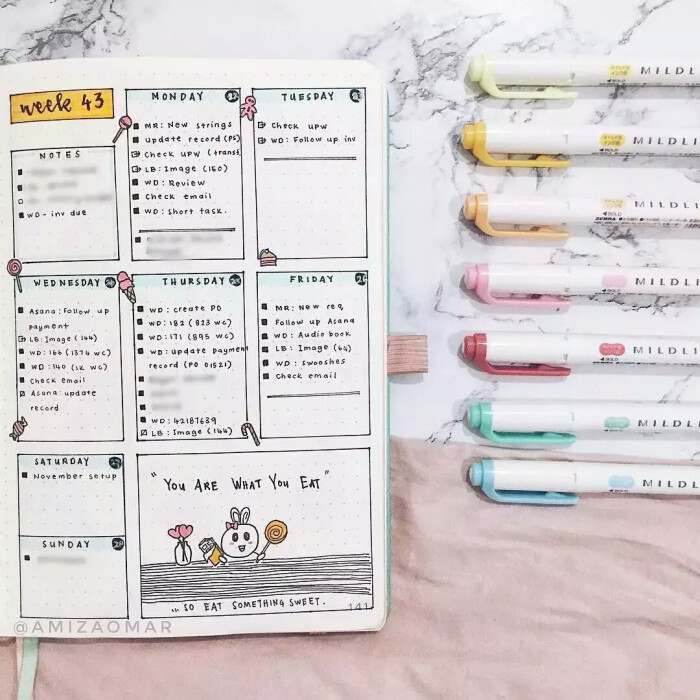 week 43
NOTES
WD- inv due
MONDAY
MR: New strings
update record (PS)
Check UPW (transf.
LB: Image (150)
WD: Review
Check email
WD: short task.
TUESDAY
Check UPW
WD: Follow up inv
WEDNESDAY
Asana: Follow up
payment
LB: Image (144)
WD: 166 (1374 WC)
WD: 140 (1K WC)
Check email
Asana: update
record
THURSDAY
WD: create PO
WD: 182 (823 WC)
WD: 171 (895 WC)
WD: update payment
record (PO 01521)
WD: 42187639
LB: Image (144)
FRIDAY
MR: New req
Follow up Asana
WD: Audio book
LB: Image (64)
WD: swooshes
Check email
SATURDAY
November setup
SUNDAY
"YOU ARE WHAT YOU EAT"
... SO EAT SOMETHING SWEET.
141
@AMIZAOMAR
MILDLI
MILDLI
MILDLI
ZEBRA
MILDLI
MILDLI
MILDLI
MILDLI